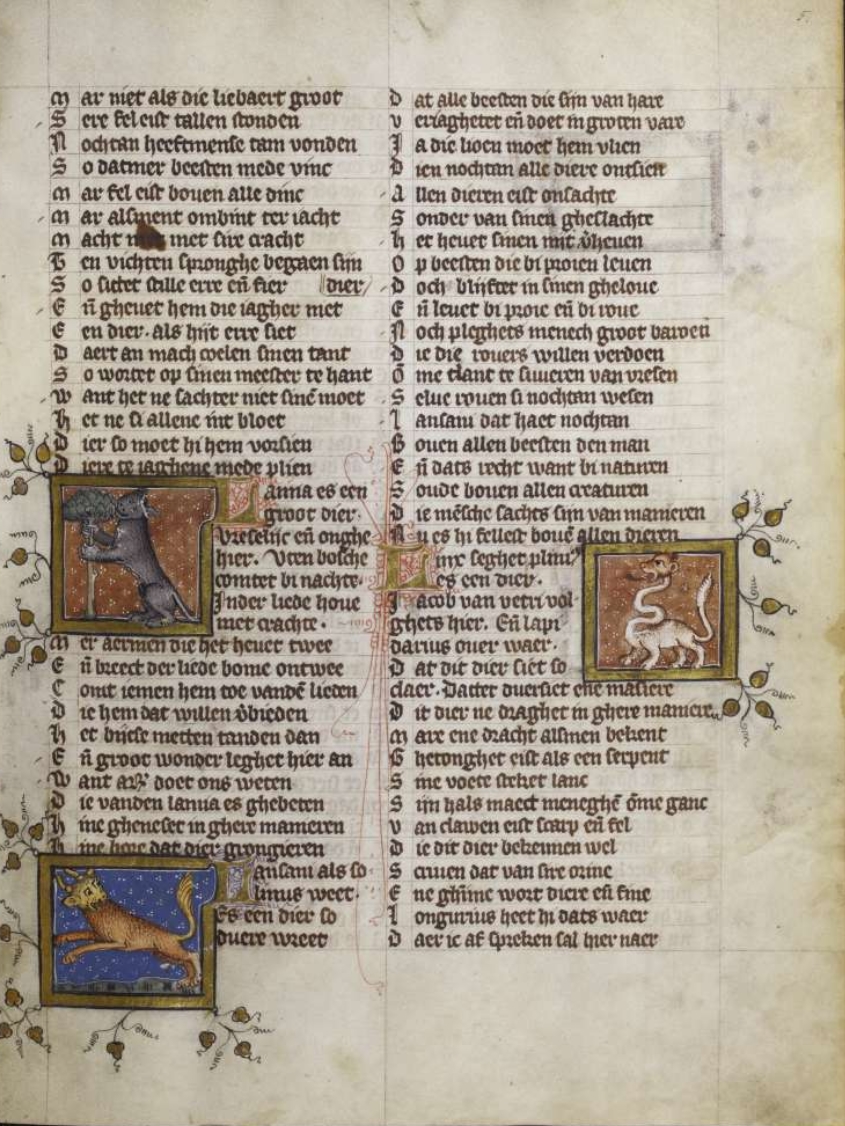 M ar niet als die liebaert groot
S ere fel eist tallen stonden
N ochtan heeftmense tam vonden
S o datmer beesten mede vinc
M ar fel eist bouen alle dinc
M ar alsment ombint ter iacht
M acht met sire cracht
T en vichten spronghe begaen sijn
S o sittet stille erre eñ fier dier
E ñ gheuet hem die iagher met
E en dier. als hijt erre siet
D aert an mach coelen sinen tant
S o wortet op sinen meester te hant
W ant het ne sachter niet sinē moet
H et ne si allene int bloet
D ier so moet hi hem vorsien
D iere te iaghene mede plien
Lanna es een
groot dier.
Vreselijc eñ onghe
hier. Vten bossche
comtet bi nachte.
Inder liede houe
met crachte.
M er aermen die het heuet twee
E ñ breect der liede bome ontwee
C omt iemen hem toe vandē lieden
D ie hem dat willen v̓bieden
H et bijtse metten tanden dan
E ñ groot wonder leghet hier an
W ant doet ons weten
D ie vanden lanna es ghebeten
H ine gheneset in ghere manieren
H ine hore dat dier grongieren
Lansani als so
linus weet.
Es een dier so
duere wreet
D at alle beesten die sijn van hare
V eriaghetet eñ doet in groten vare
J a die lioen moet hem vlien
D ien nochtan alle diere ontsien
A llen dieren eist onsachte
S onder van sinen gheslachte
H et heuet sinen nijt v̓heuen
O p beesten die bi proien leuen
D och blijftet in sinen gheloue
E ñ leuet bi proie eñ bi roue
N och pleghets menech groot baroen
D ie die rouers willen verdoen
Ō me tlant te suueren van vresen
S elue rouen si nochtan wesen
L ansani dat haet nochtan
B ouen allen beesten den man
E ñ dats recht want bi naturen
S oude bouen allen creaturen
D ie mēsche sachts sijn van manieren
N u es hi fellest bouē allen dieren
Linx seghet plini᷒
es een dier.
J acob van vetri vol
ghets hier. Eñ lapi
darius ouer waer.
D at dit dier siet so
claer. Datter duersiet ene masiere
D it dier ne draghet in ghere maniere
M are ene dracht alsmen bekent
G hetonghet eist als een serpent
S ine voete steket lanc
S ijn hals maect meneghē ōme ganc
V an clawen eist scarp eñ fel
D ie dit dier bekennen wel
S criuen dat van sire orine
E ne ghīme wort diere eñ fine
L ongurius heet hi dats waer
D aer ic af spreken sal hier naer